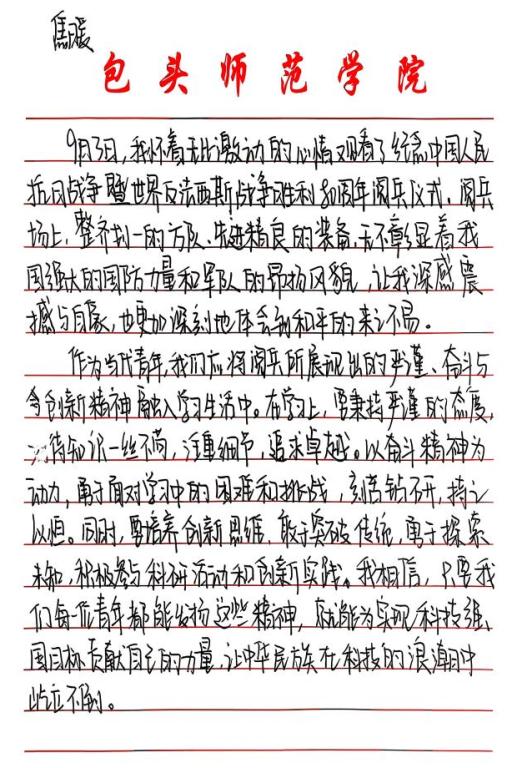 焦暖
包头师范学院
9月3日，我怀着无比激动的心情观看了纪念中国人民
抗日战争暨世界反法西斯战争胜利80周年阅兵仪式。阅兵
场上，整齐划一的方队、先进精良的装备，无不彰显着我
国强大的国防力量和军队的昂扬风貌，让我深感震
撼与自豪，也更加深刻地体会到和平的来之不易。
作为当代青年，我们应将阅兵所展现出的严谨、奋斗与
创新精神融入学习生活中。在学习上，要秉持严谨的态度，
对待知识一丝不苟，注重细节，追求卓越。以奋斗精神为
动力，勇于面对学习中的困难和挑战，刻苦钻研，持之
以恒。同时，要培养创新思维，敢于突破传统，勇于探索
未知，积极参与科研活动和创新实践。我相信，只要我
们每一位青年都能发扬这些精神，就能为实现科技强
国目标贡献自己的力量，让中华民族在科技的浪潮中
屹立不倒。